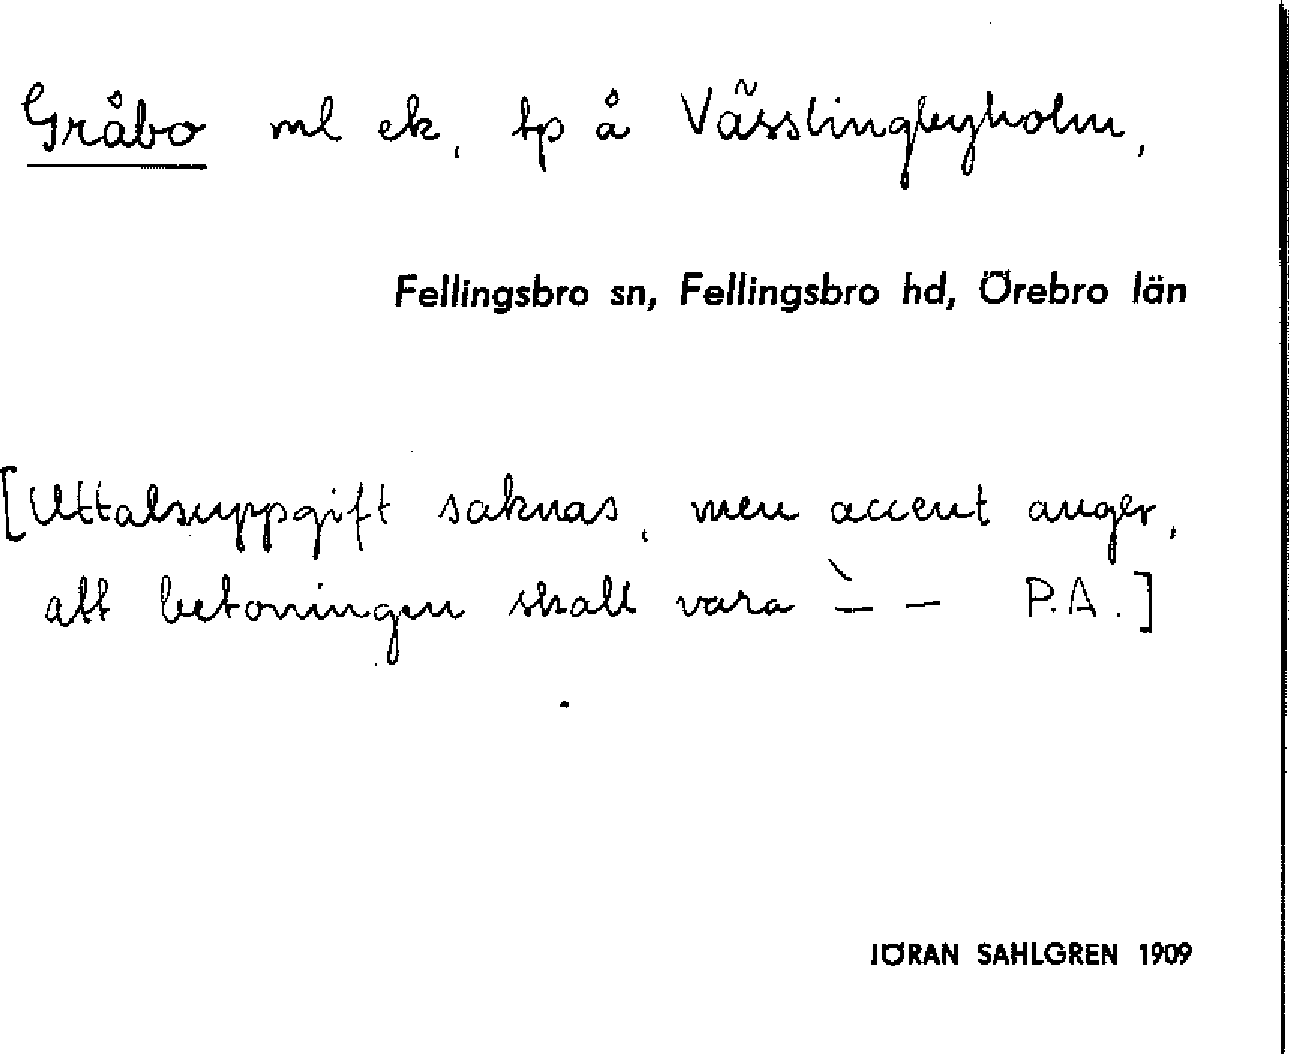 Gråbo ml ek, tp å Vässlingbyholm,
Fellingsbro sn, Fellingsbro hd, Örebro län
[Uttalsuppgift saknas, men accent anger,
att betoningen skall vara ` — — P.A.]
JÖRAN SAHLGREN 1909